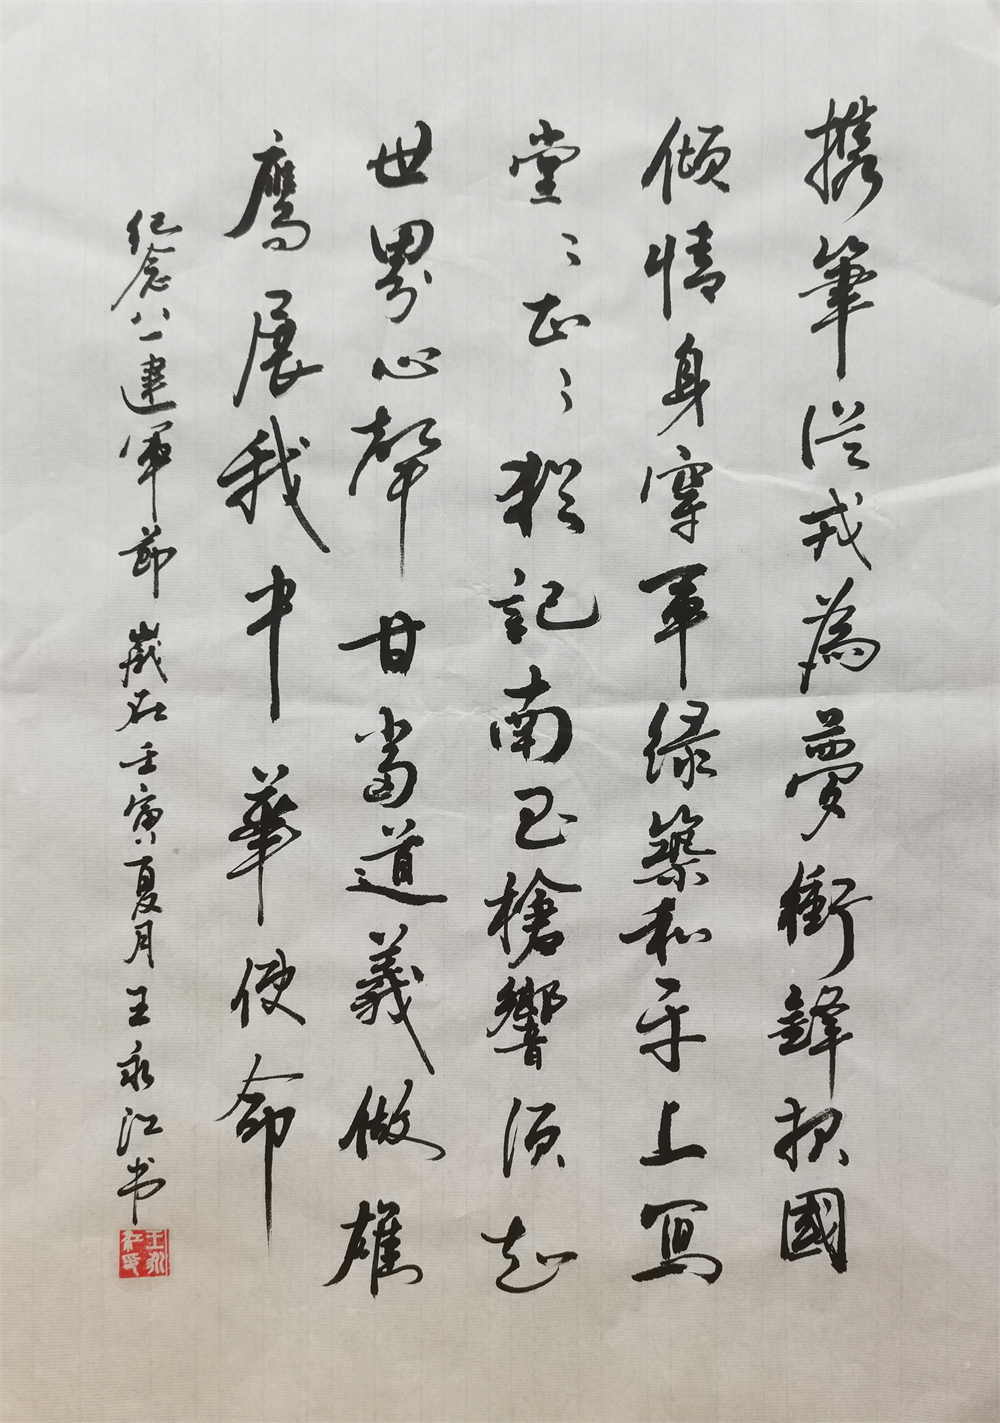 携筆従戎為夢衝鋒報國
傾情身穿軍綠築和平上寫
堂々正々猶記南昌槍響須知
世界心聲甘當道義做雄
鷹展我中華使命
纪念八一建軍節 歲在壬寅夏月王永江书
王永江印